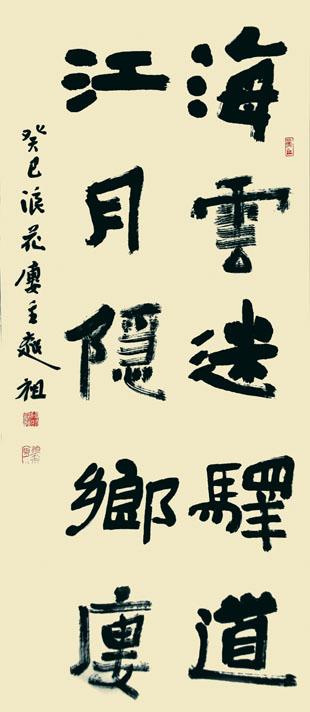 海雲迷驛道
江月隱鄉廔
癸巳浪花廔主趂祖